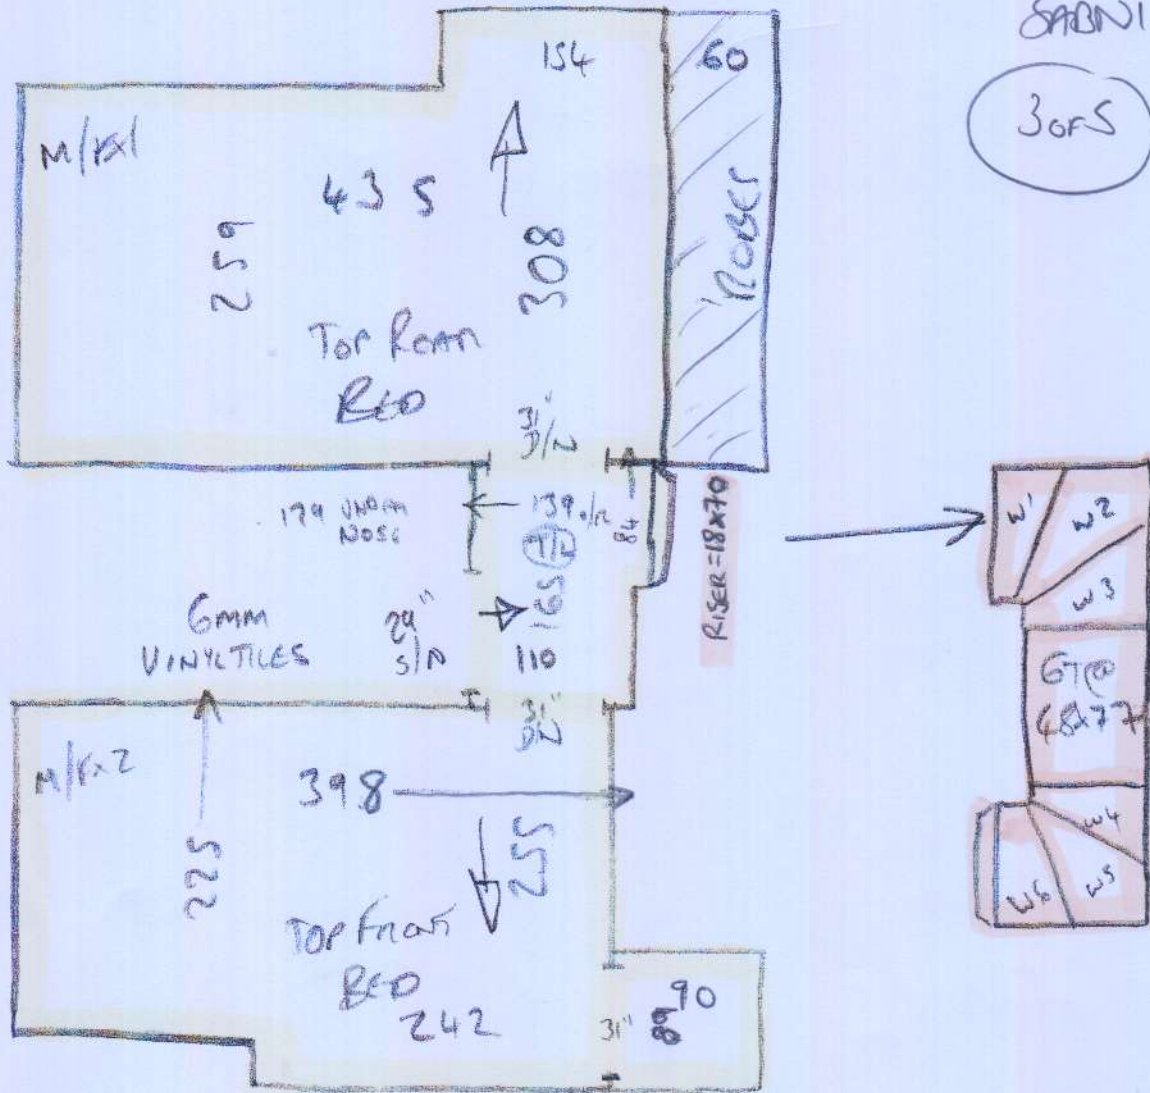 SABNI
3 OF 5
154
60
M/Rx1
435
259
308
ROBES
TOP REAR
BED
31"
D/N
179 UNDER
NOSE
139 o/R
84
T/L
165
RISER=18x70
6MM
VINYL TILES
29"
S/N
110
31"
D/N
M/Rx2
398
225
255
TOP FRONT
BED
242
31"
89
90
W1
W2
W3
6T@
48x77
W4
W5
W6